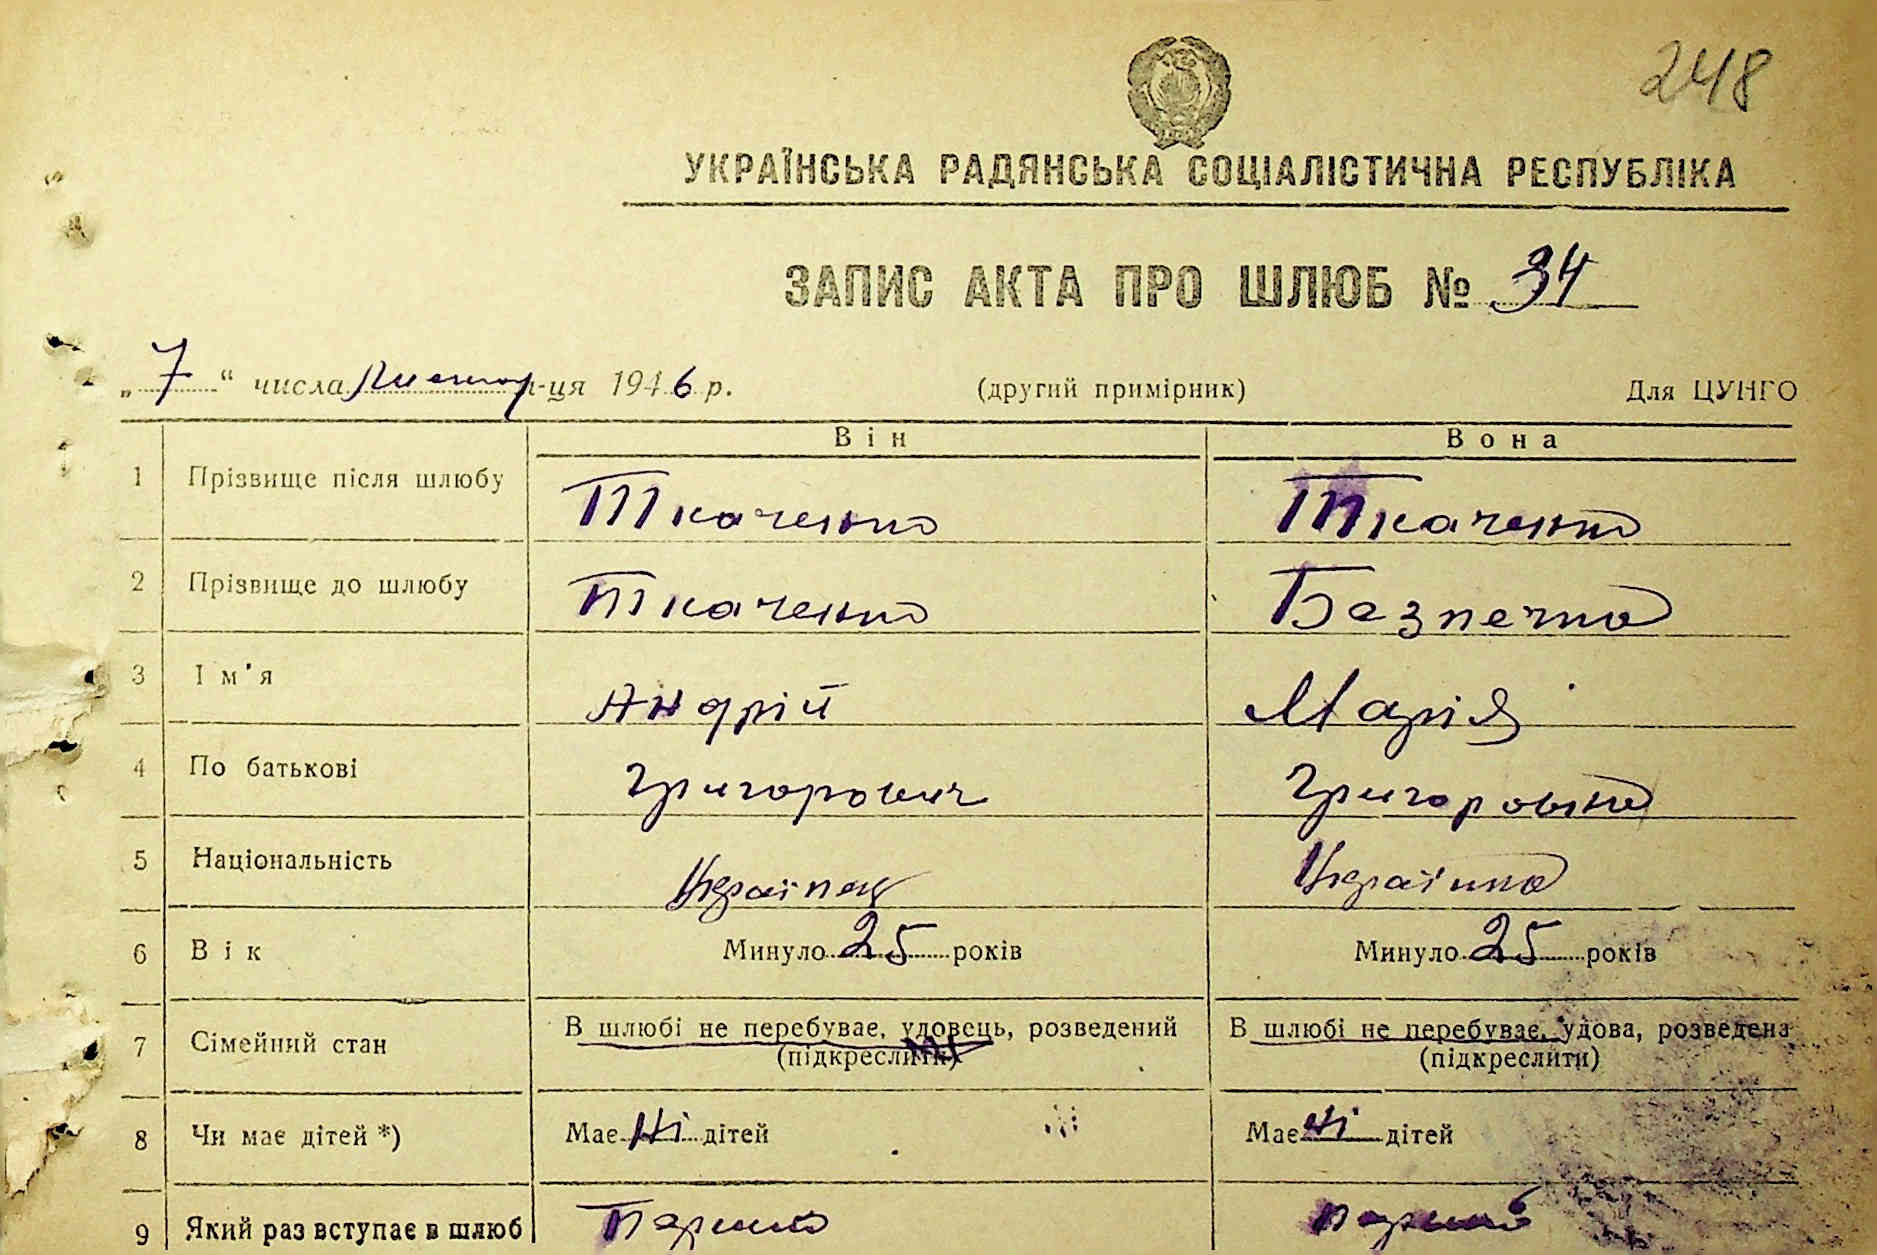 248
УКРАЇНСЬКА РАДЯНСЬКА СОЦІАЛІСТИЧНА РЕСПУБЛІКА
ЗАПИС АКТА ПРО ШЛЮБ № 34
„7“ числа листоп-ця 1946 р. (другий примірник) Для ЦУНГО
Він Вона
1 Прізвище після шлюбу Ткаченко Ткаченко
2 Прізвище до шлюбу Ткаченко Безпечна
3 Ім'я Андрій Марія
4 По батькові Григорович Григоровна
5 Національність Українец Українка
6 Вік Минуло 25 років Минуло 25 років
7 Сімейний стан В шлюбі не перебуває, удовець, розведений В шлюбі не перебуває, удова, розведена
(підкреслити) (підкреслити)
8 Чи має дітей *) Має ні дітей Має ні дітей
9 Який раз вступає в шлюб Перший перший